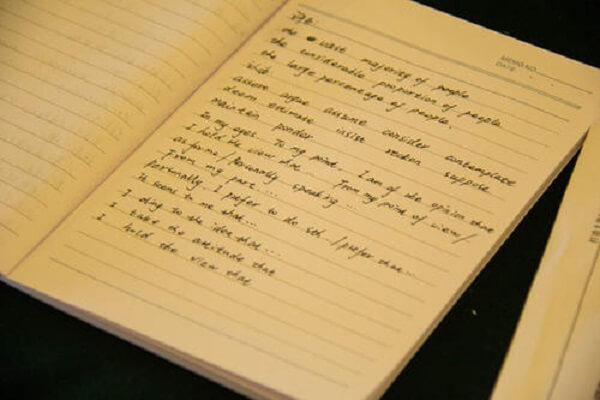 MEMO NO.
DATE
the vast majority of people
the considerable proportion of people
the large percentage of people.
assure argue assume consider contemplate
deem estimate insist reckon suppose
Maintain ponder
In my eyes. To my point... I am of the opinion that
I hold the view that... From my point of view/
as for me / Personally speaking...
From my part...
Personally I prefer to do sth.../prefer that...
It seems to me that...
I cling to the idea that...
I take the attitude that
I hold the view that